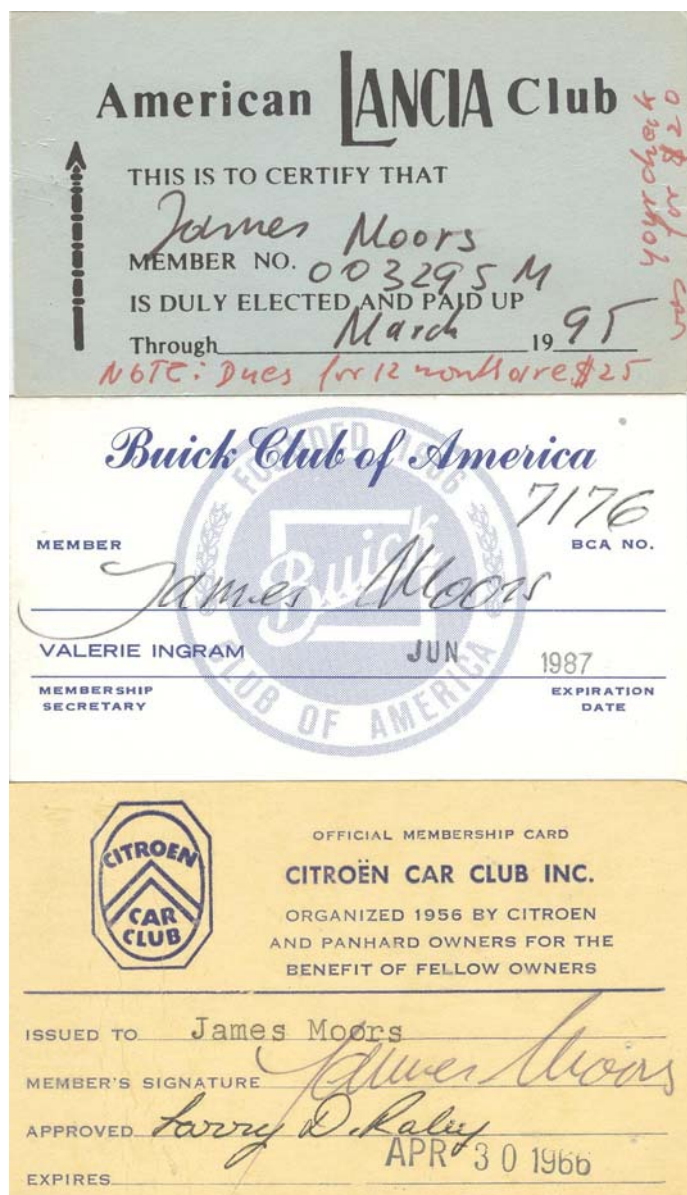 American LANCIA Club
THIS IS TO CERTIFY THAT
James Moors
MEMBER NO. 003295 M
IS DULY ELECTED AND PAID UP
Through March 1995
NOTE: Dues for 12 months are $25
for $20
Buick Club of America
FOUNDED 1966
7176
MEMBER
BCA NO.
James Moors
Buick
VALERIE INGRAM JUN 1987
MEMBERSHIP SECRETARY
EXPIRATION DATE
CLUB OF AMERICA
CITROEN
CAR
CLUB
OFFICIAL MEMBERSHIP CARD
CITROËN CAR CLUB INC.
ORGANIZED 1956 BY CITROEN
AND PANHARD OWNERS FOR THE
BENEFIT OF FELLOW OWNERS
ISSUED TO James Moors
MEMBER'S SIGNATURE James Moors
APPROVED Larry D. Raley
EXPIRES APR 30 1966